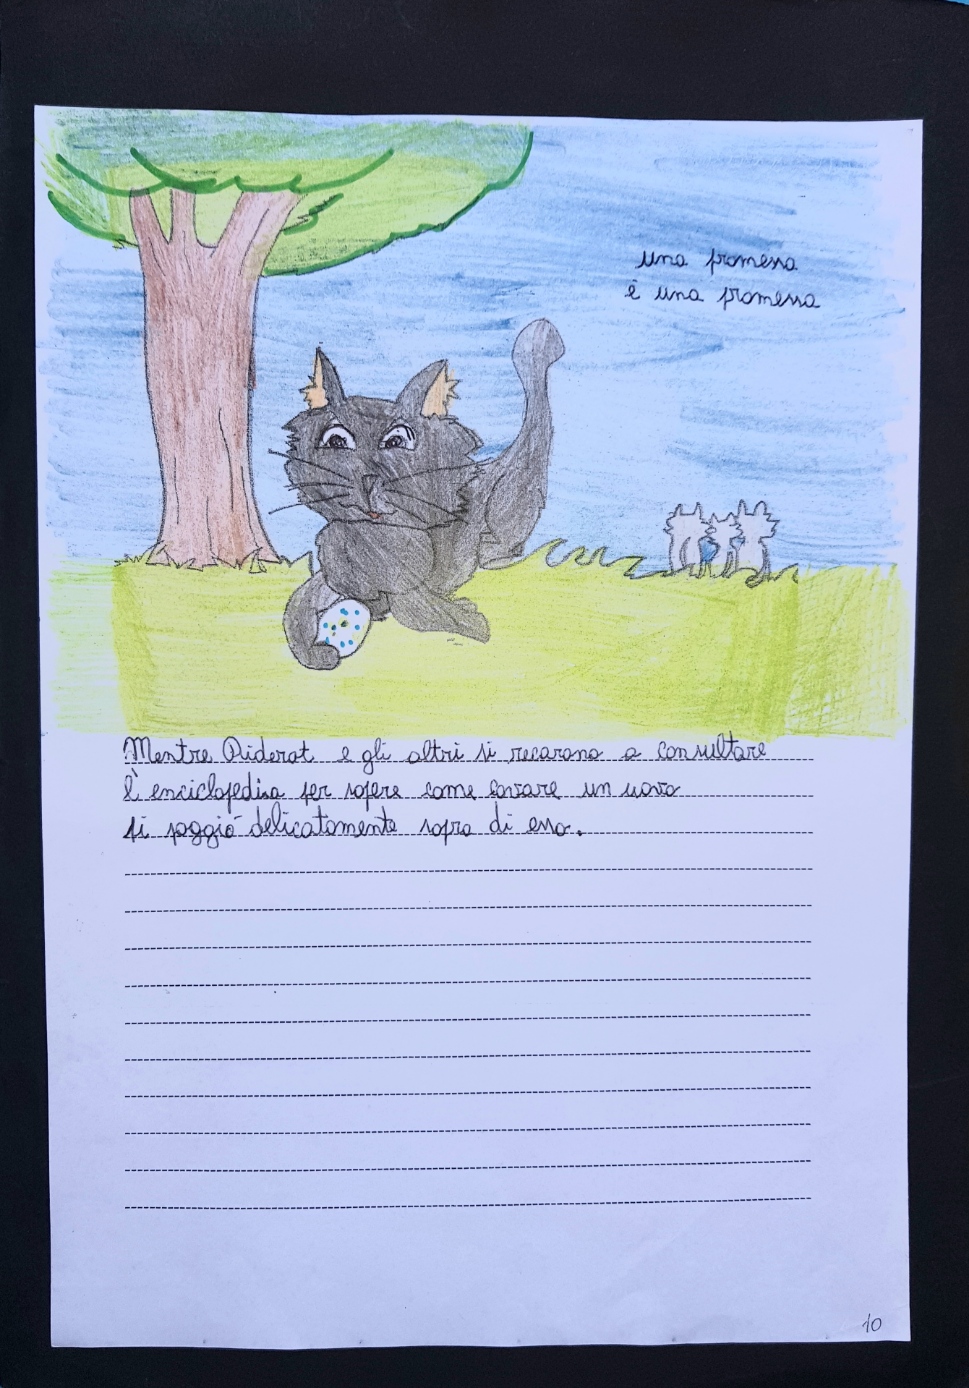 una promessa
è una promessa
Mentre Diderot e gli altri si recarono a consultare
l'enciclopedia per sapere come covare un uovo
si poggió delicatamente sopra di esso.
10